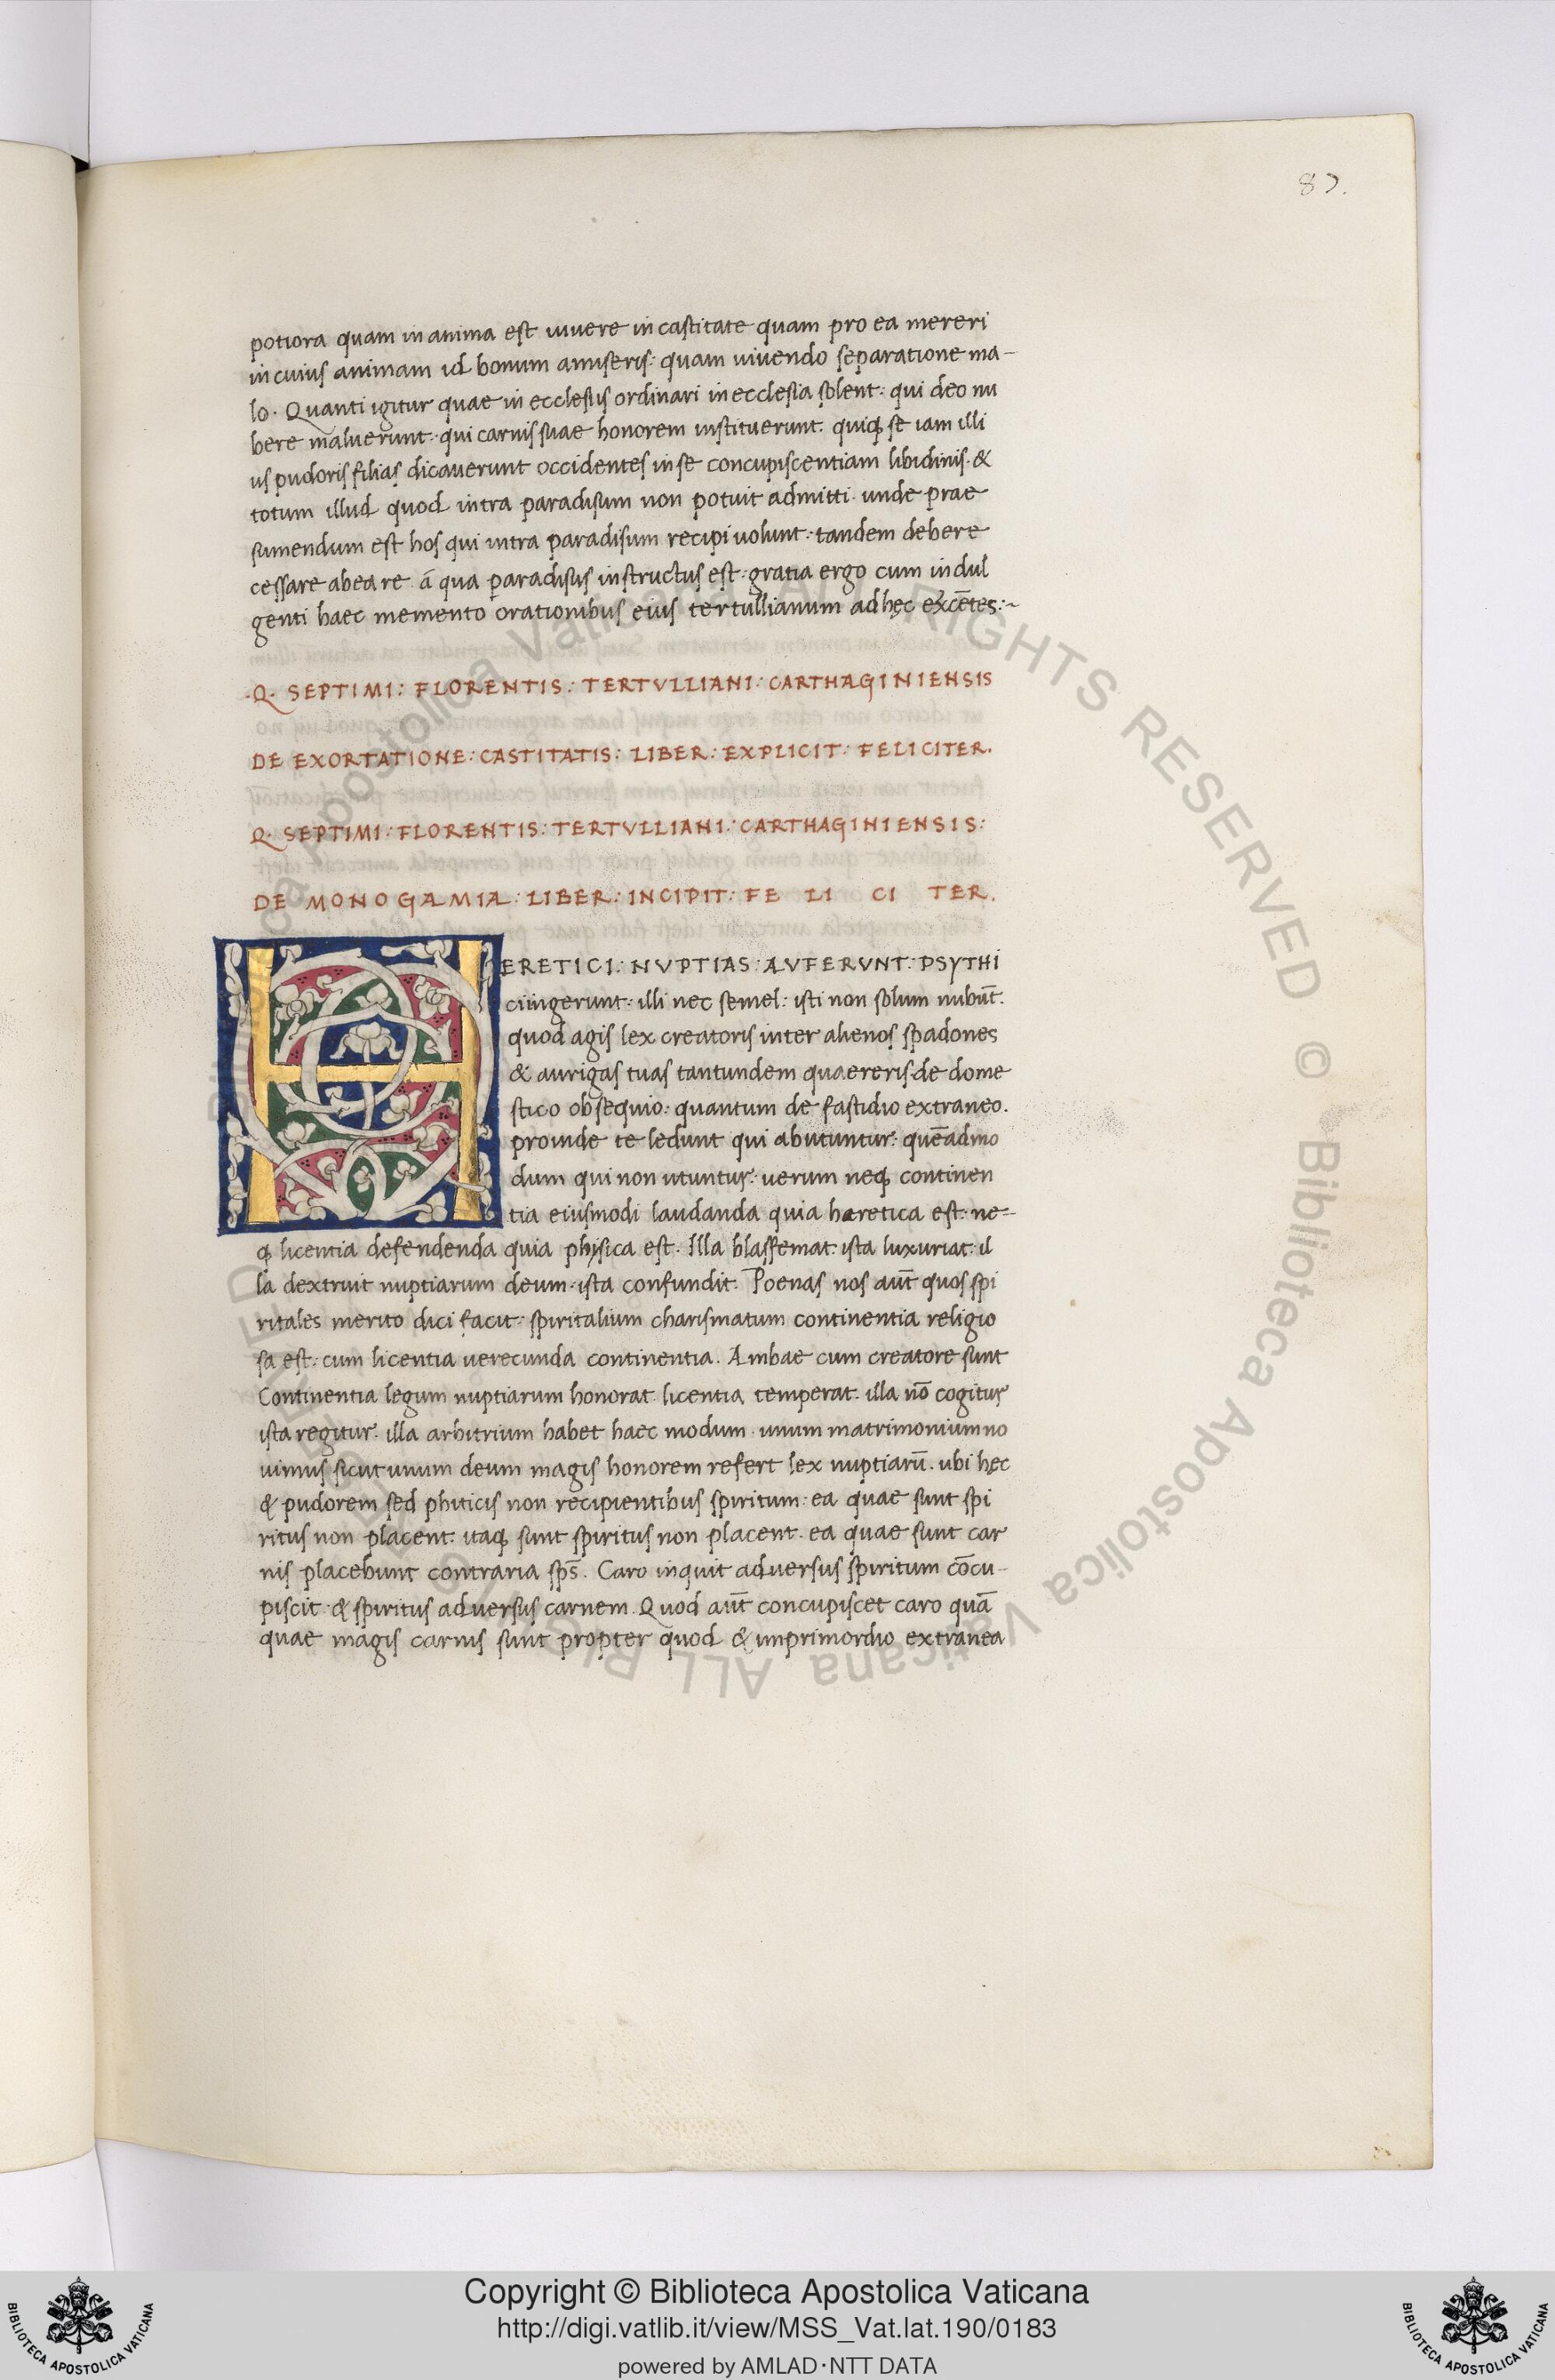 87.
potiora quam in anima est uiuere in castitate quam pro ea mereri
in cuius animam id bonum amiseris: quam uiuendo separatione ma-
lo. Quanti igitur quae in ecclesiis ordinari in ecclesia solent: qui deo nu
bere maluerunt: qui carnis suae honorem instituerunt. quiqꝫ se iam illi
us pudoris filias dicauerunt occidentes in se concupiscentiam libidinis. &
totum illud quod intra paradisum non potuit admitti. unde prae
sumendum est hos qui intra paradisum recipi uolunt: tandem debere
cessare ab ea re á qua paradisus instructus est: gratia ergo cum indul
genti haec memento orationibus eius tertullianum ad hęc excētes:~
.Q. SEPTIMI: FLORENTIS: TERTVLLIANI: CARTHAGINIENSIS
DE EXORTATIONE: CASTITATIS: LIBER: EXPLICIT: FELICITER.
Q. SEPTIMI: FLORENTIS: TERTVLLIANI: CARTHAGINIENSIS:
DE MONOGAMIA: LIBER: INCIPIT: FE LI CI TER.
HERETICI: NVPTIAS: AVFERVNT: PSYTHI
ci ingerunt: illi nec semel: isti non solum nubūt.
quod agis lex creatoris inter alienos spadones
& aurigas tuas tantundem quaereris de dome
stico obsequio: quantum de fastidio extraneo.
proinde te ledunt qui abutuntur: quēadmo
dum qui non utuntur: uerum neqꝫ continen
tia eiusmodi laudanda quia haeretica est: ne=
qꝫ licentia defendenda quia physica est. Illa blasfemat: ista luxuriat: il
la dextruit nuptiarum deum: ista confundit. Poenas nos aūt quos spi
ritales merito dici facit: spiritalium charismatum continentia religio
sa est: cum licentia uerecunda continentia. Ambae cum creatore sunt
Continentia legum nuptiarum honorat licentia temperat. illa nō cogitur
ista regitur. illa arbitrium habet haec modum. unum matrimonium no
uimus sicut unum deum magis honorem refert lex nuptiarū. ubi hęc
& pudorem sed phiticis non recipientibus spiritum: ea quae sunt spi
ritus non placent. itaqꝫ sunt spiritus non placent. ea quae sunt car
nis placebunt contraria sp̄s. Caro inquit aduersus spiritum cōcu-
piscit & spiritus aduersus carnem. Quod aūt concupiscet caro quā
quae magis carnis sunt propter quod & inprimordio extranea
Copyright © Biblioteca Apostolica Vaticana
http://digi.vatlib.it/view/MSS_Vat.lat.190/0183
powered by AMLAD·NTT DATA
BIBLIOTECA APOSTOLICA VATICANA
BIBLIOTECA APOSTOLICA VATICANA